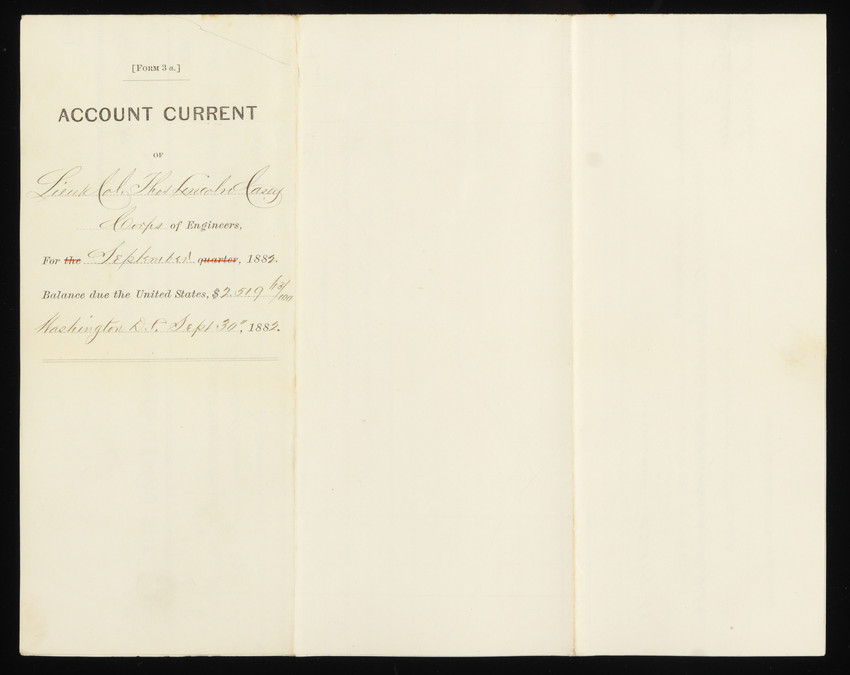 [FORM 3 a.]
ACCOUNT CURRENT
OF
Lieut Col. Thos Lincoln Casey
Corps of Engineers,
For the September quarter, 1882.
Balance due the United States, $2.519 63/100
Washington D.C. Sept 30", 1882.